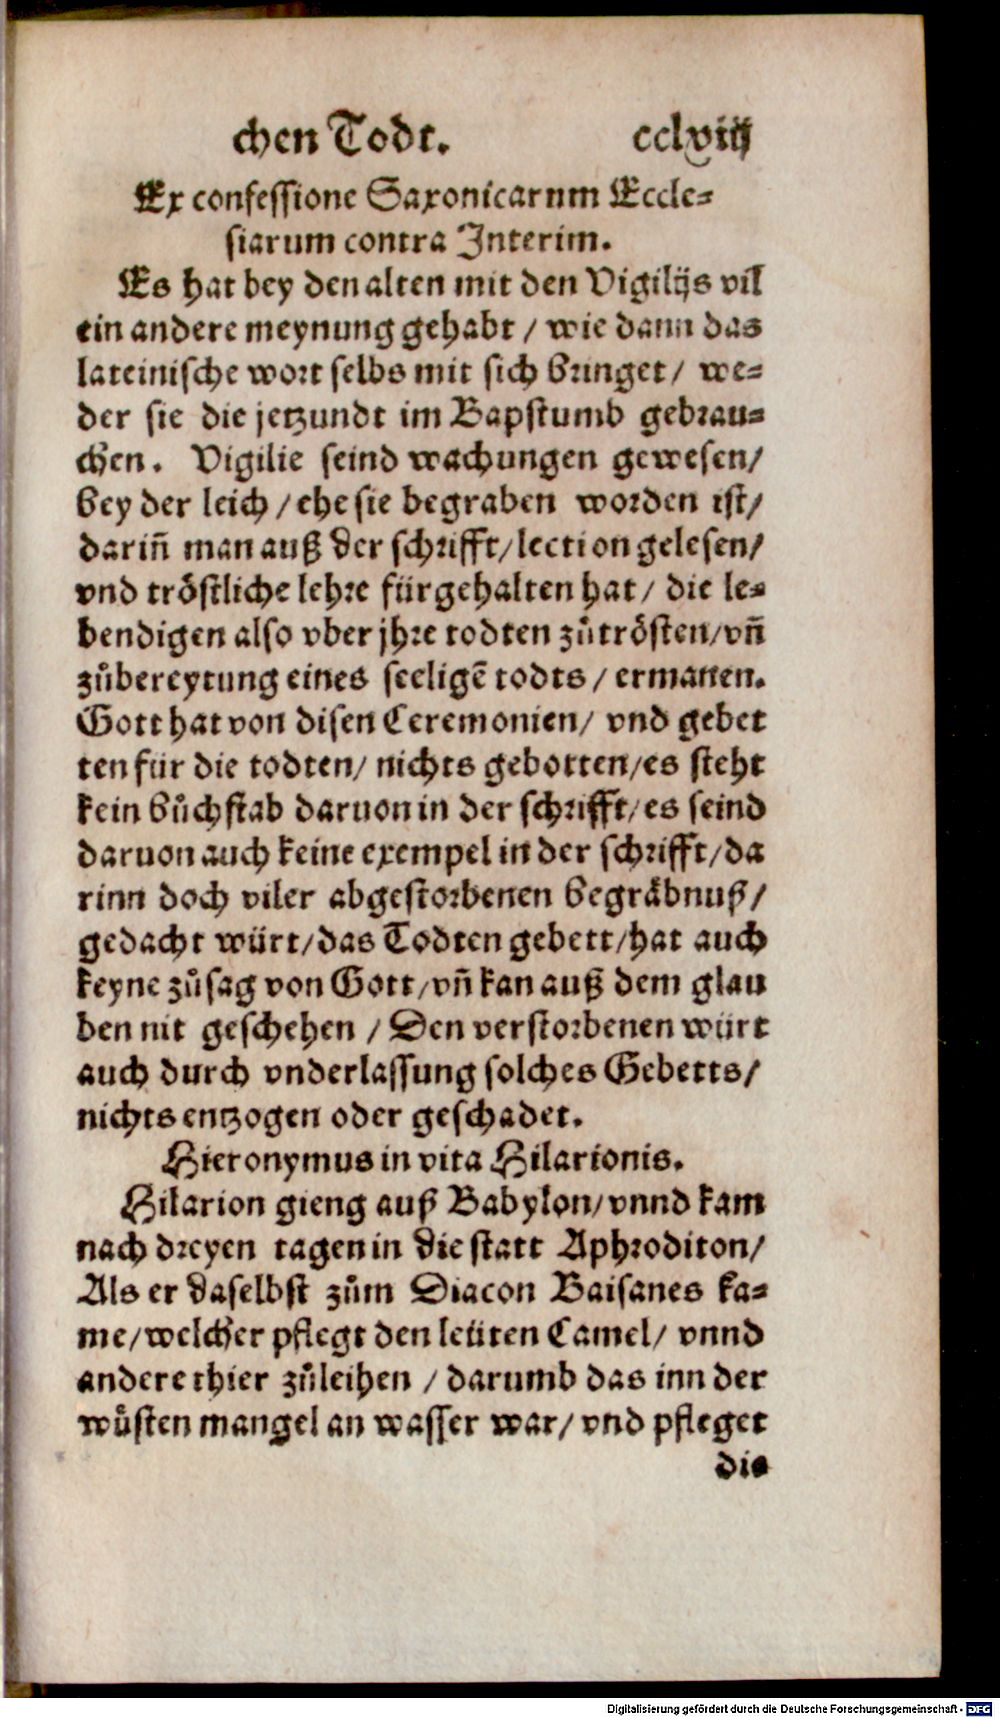 chen Todt. cclviij
Ex confessione Saxonicarum Eccle-
siarum contra Interim.
Es hat bey den alten mit den Vigilijs vil
ein andere meynung gehabt / wie dann das
lateinische wort selbs mit sich bringet / we-
der sie die jetzundt im Bapstumb gebrau-
chen. Vigilie seind wachungen gewesen/
bey der leich / ehe sie begraben worden ist/
dariñ man auß der schrifft/ lection gelesen/
vnd tröstliche lehre fürgehalten hat / die le-
bendigen also vber jhre todten zůtrösten/ vñ
zůbereytung eines seeligẽ todts / ermanen.
Gott hat von disen Ceremonien / vnd gebet
ten für die todten / nichts gebotten/ es steht
kein bůchstab daruon in der schrifft/ es seind
daruon auch keine exempel in der schrifft/ da
rinn doch viler abgestorbenen begräbnuß/
gedacht würt/ das Todten gebett/ hat auch
keyne zůsag von Gott/ vñ kan auß dem glau
ben nit geschehen / Den verstorbenen würt
auch durch vnderlassung solches Gebetts/
nichts entzogen oder geschadet.
Hieronymus in vita Hilarionis.
Hilarion gieng auß Babylon/ vnnd kam
nach dreyen tagen in die statt Aphroditon/
Als er daselbst zům Diacon Baisanes ka-
me/ welcher pflegt den leüten Camel/ vnnd
andere thier zůleihen / darumb das inn der
wůsten mangel an wasser war/ vnd pfleget
die
Digitalisierung gefördert durch die Deutsche Forschungsgemeinschaft - DFG